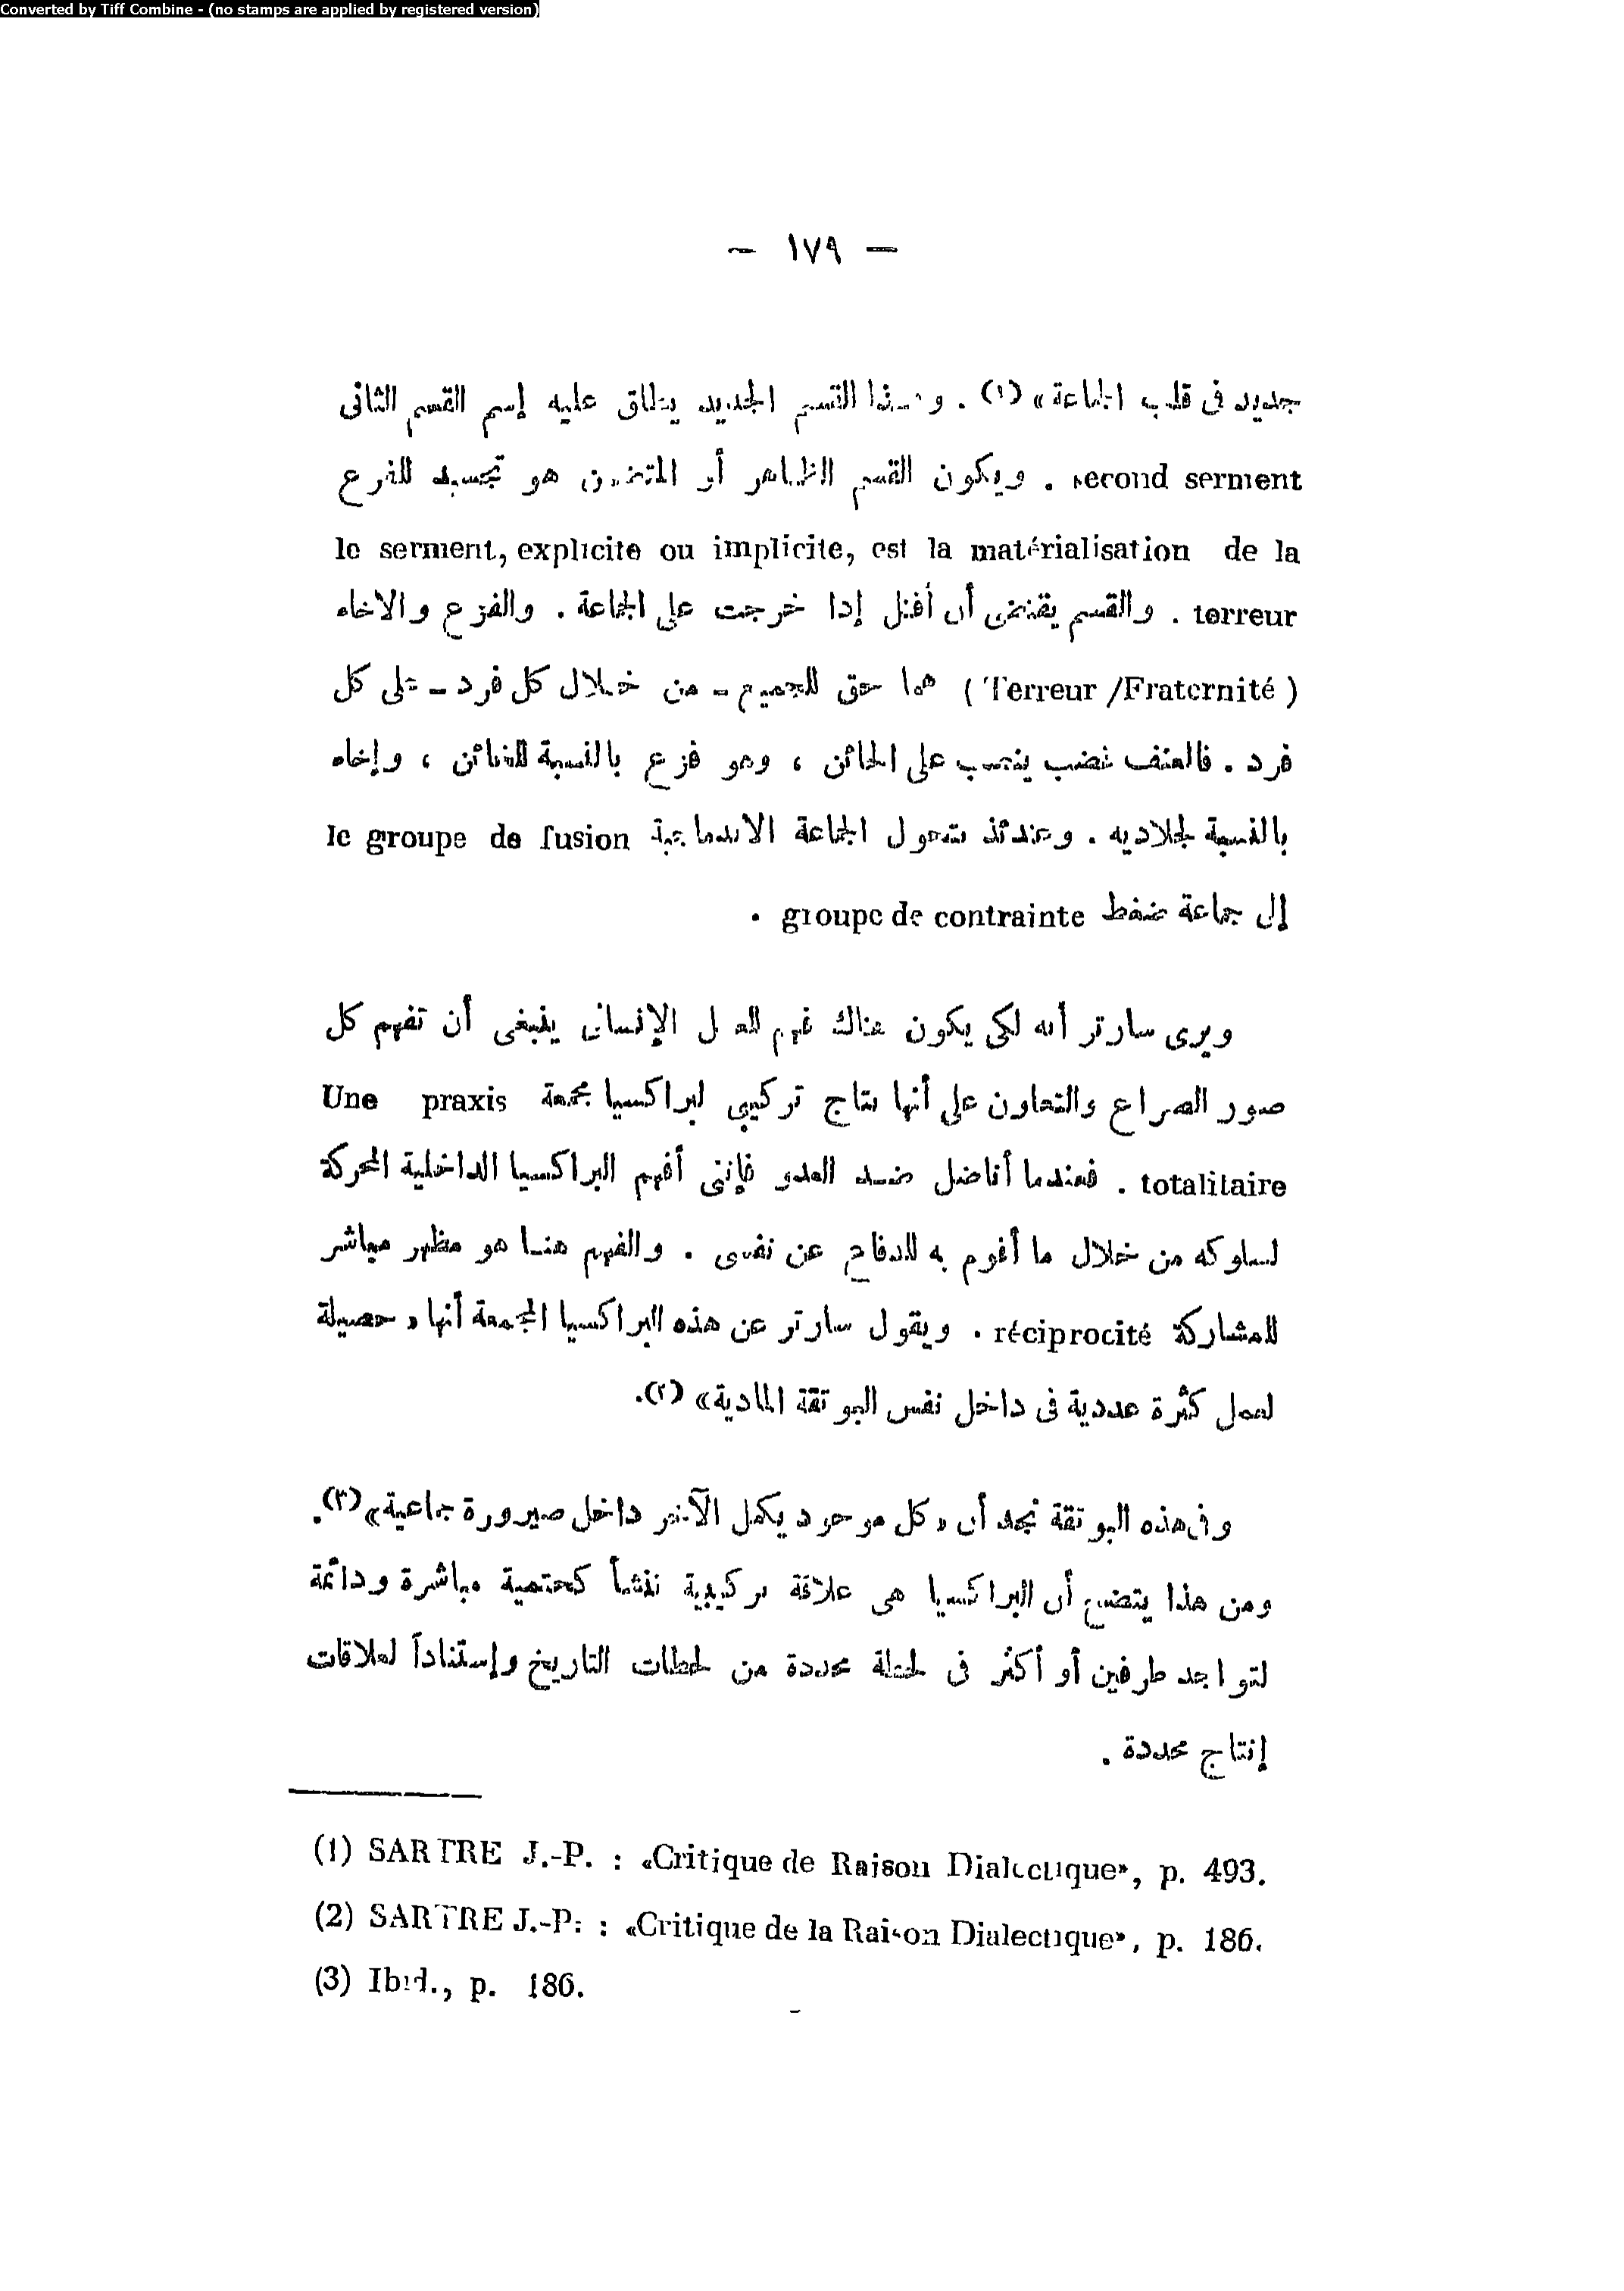 Converted by Tiff Combine - (no stamps are applied by registered version)
— ١٧٩ —
جديد فى قلب الجماعة» (١) . وهذا القسم الجديد يطلق عليه إسم القسم الثانى
second serment . ويكون القسم الظاهر أو المتضمن هو تجسيد للفزع
le serment, explicite ou implicite, est la matérialisation de la
terreur . والقسم يقتضى أن أقتل إذا خرجت على الجماعة . والفزع والاخاء
( Terreur /Fraternité ) هما حق للجميع - من خلال كل فرد - على كل
فرد . فالعنف غضب ينصب على الخائن ، وهو فزع بالنسبة للخائن ، وإخاء
بالنسبة لجلاديه . وعندئذ تتحول الجماعة الاندماجية le groupe de fusion
إلى جماعة ضغط groupe de contrainte .
ويرى سارتر أنه لكى يكون هناك فهم للعمل الإنسانى ينبغى أن تفهم كل
صور الصراع والتعاون على أنها نتاج تركيبى لبراكسيا مجمعة Une praxis
totalitaire . فعندما أناضل ضد العدو فإننى أفهم البراكسيا الداخلية المحركة
لسلوكه من خلال ما أقوم به للدفاع عن نفسى . والفهم هنا هو مظهر مباشر
للمشاركة réciprocité . ويقول سارتر عن هذه البراكسيا المجمعة أنها « حصيلة
لعمل كثرة عددية فى داخل نفس البوتقة المادية» (٢).
وفى هذه البوتقة نجد أن «كل موجود يكمل الآخر داخل صيرورة جماعية» (٣).
ومن هذا يتضح أن البراكسيا هى علاقة تركيبية تنشأ كحتمية مباشرة ودائمة
لتواجد طرفين أو أكثر فى لحظة محددة من لحظات التاريخ وإستناداً لعلاقات
إنتاج محددة .
(1) SARTRE J.-P. : «Critique de Raison Dialectique», p. 493.
(2) SARTRE J.-P. : «Critique de la Raison Dialectique», p. 186.
(3) Ibid., p. 186.